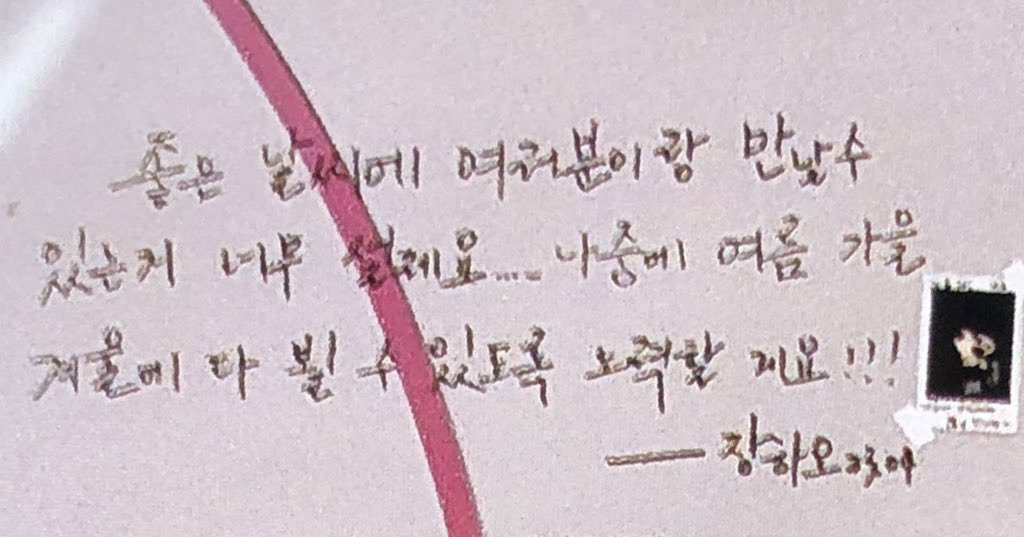 좋은 날씨에 여러분이랑 만날수
있는지 너무 설레요.... 나중에 여름 가을
겨울에 다 뵐 수 있도록 노력할 게요!!!
— 장하오